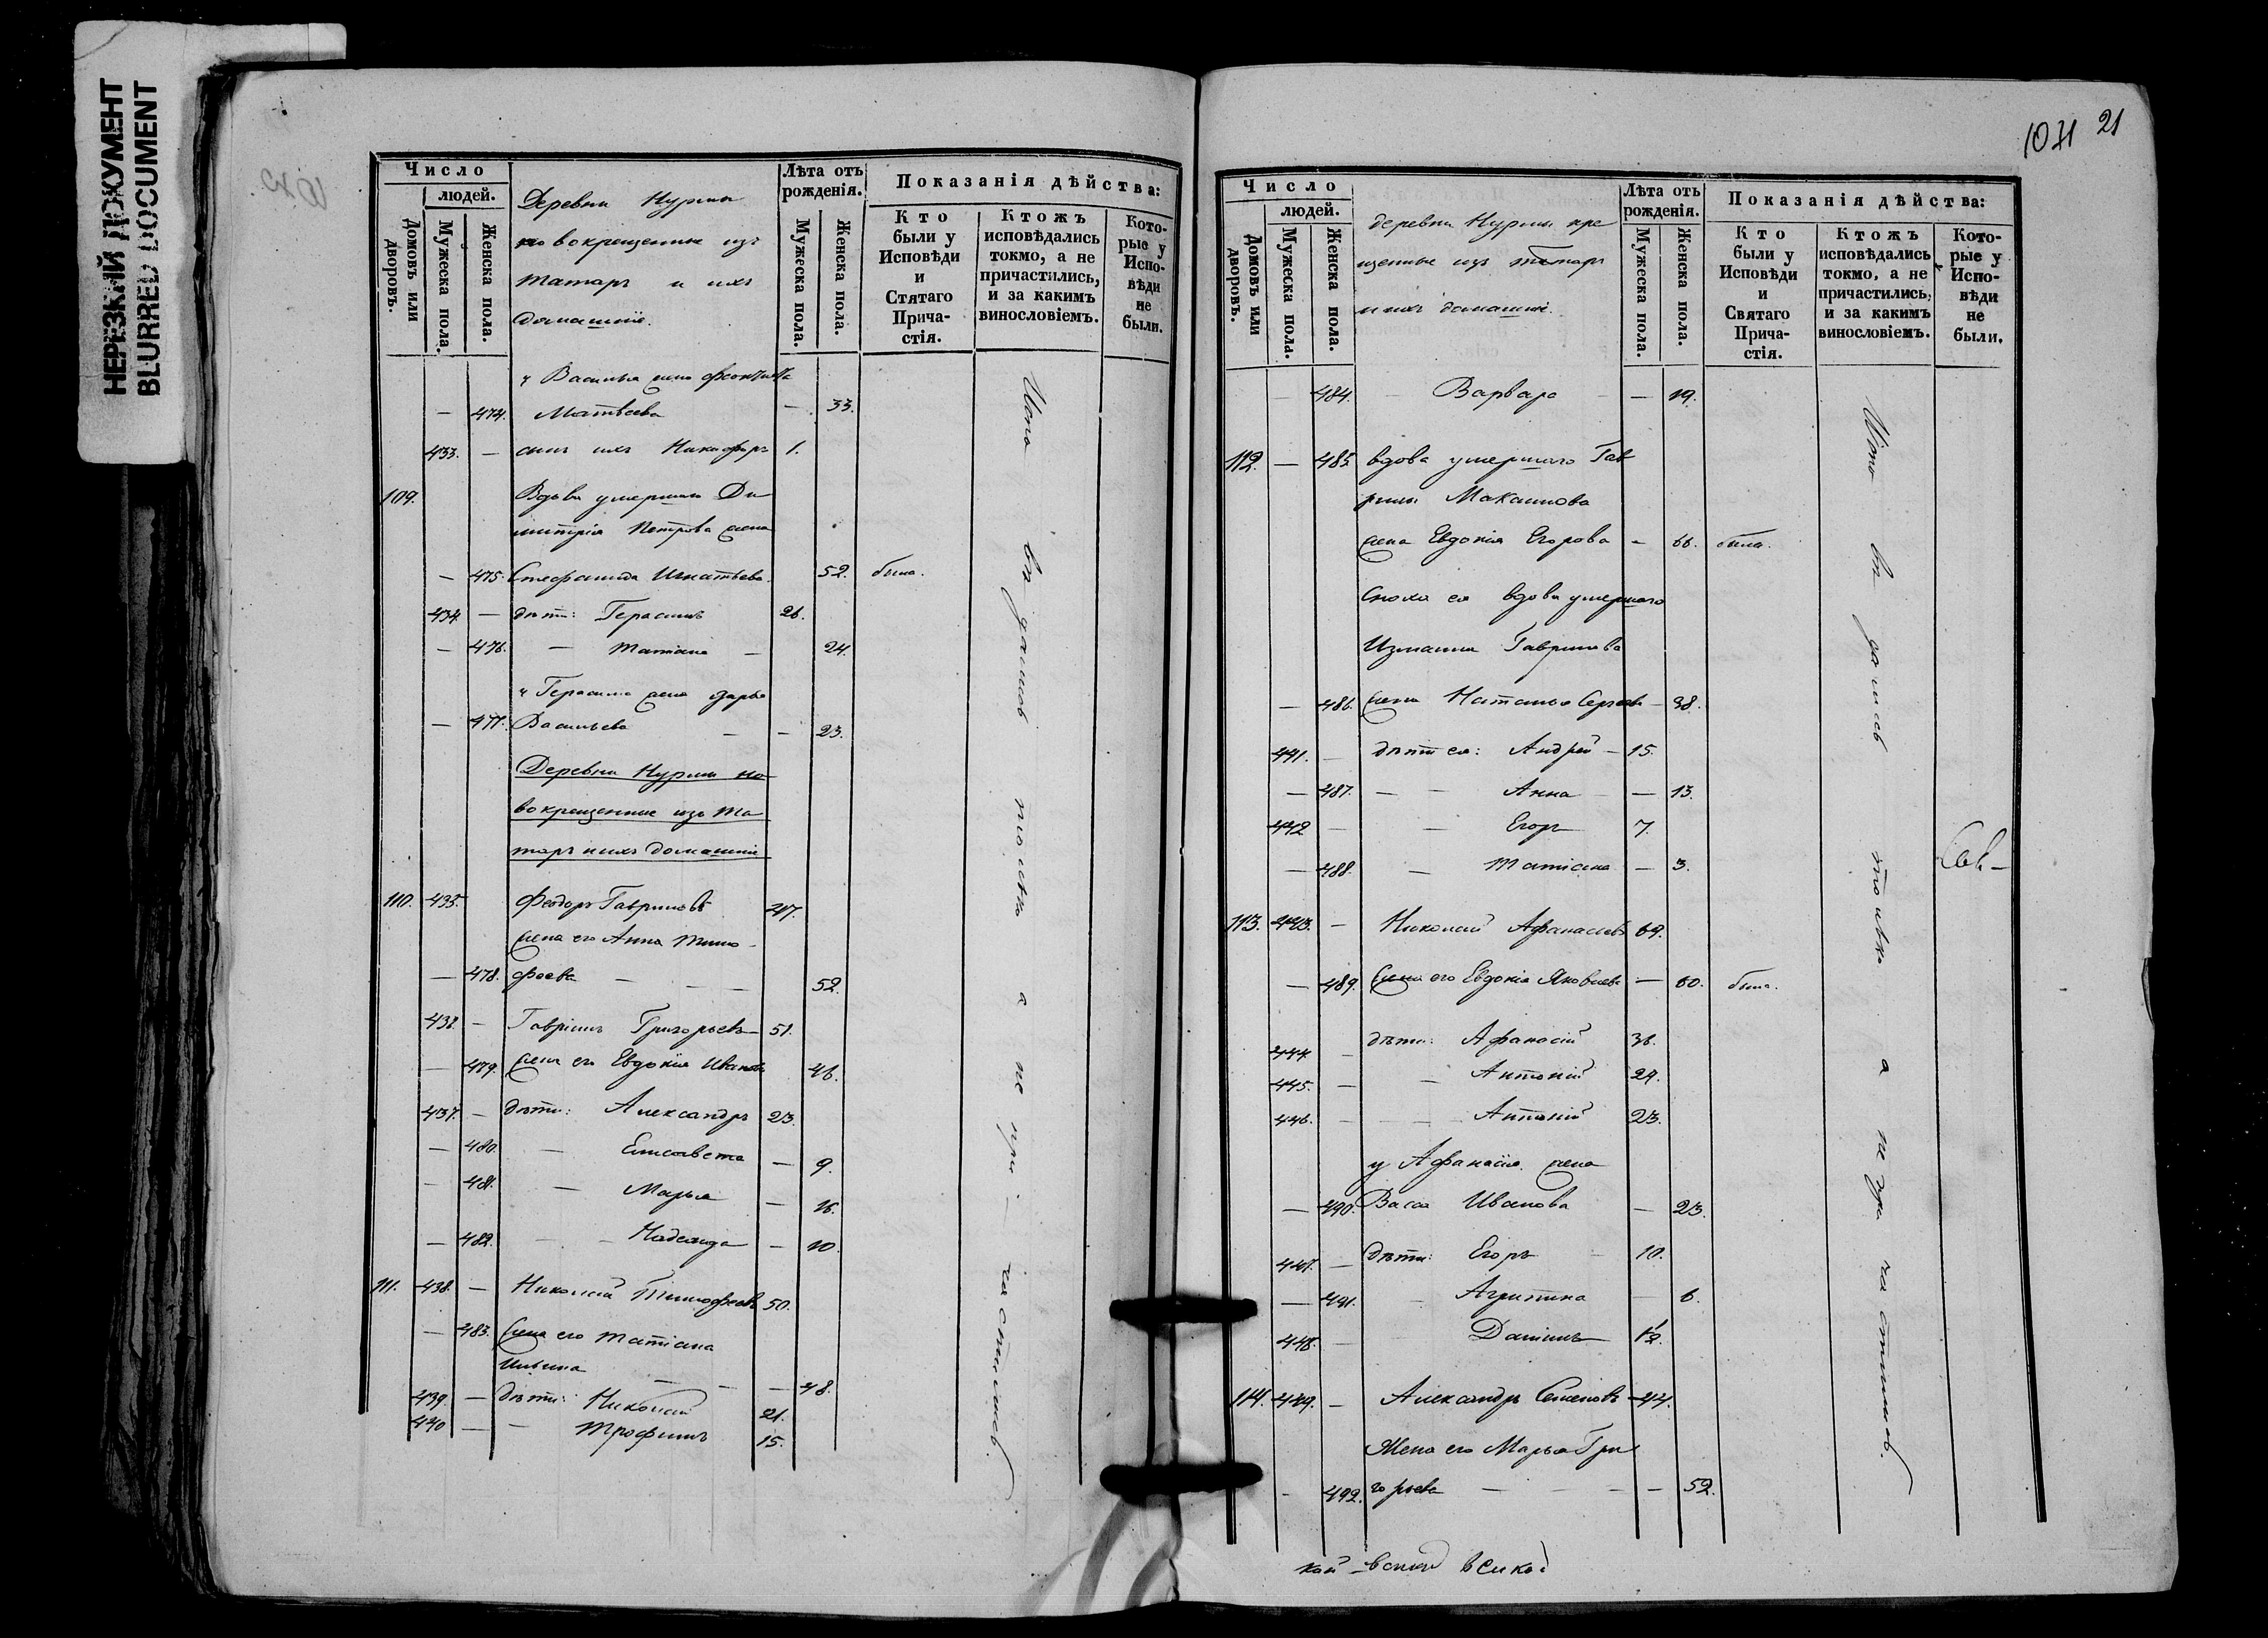 НЕРЕЗКИЙ ДОКУМЕНТ
BLURRED DOCUMENT
Число
людей.
Домовъ или дворовъ.
Мужеска пола.
Женска пола.
Деревни Нурмы
новокрещенные изъ
татаръ и ихъ
домашніе.
Лѣта отъ рожденія.
Мужеска пола.
Женска пола.
Показанія дѣйства:
Кто были у Исповѣди и Стятаго Прича-стія.
Ктожъ исповѣдались токмо, а не причастились, и за какимъ винословіемъ.
Кото-рые у Испо-вѣди не были.
у Василья жена
— 474. Матвеева — 33.
433. — сынъ ихъ Никифоръ 1.
109. Вдова умершаго Ди
митрія Петрова жена
— 475. Стефанида Игнатьева. 52. была.
434. — дѣти: Герасимъ 26.
— 476. — Татіана — 24.
у Герасима жена Дарья
— 477. Васильева — — 23.
Деревни Нурмы но
вокрещенные изъ та
таръ и ихъ домашніе
110. 435. Феодоръ Гавриловъ 47.
жена его Анна Тимо-
— 478. феева — — — 52.
436. — Гавріилъ Григорьевъ — 51.
— 479. жена его Евдокія Иванова 46.
437. — дѣти: Александръ 23.
— 480. — Елисавета — 9.
— 481. — Марья — 16.
— 482. — — Надежда — 10.
111. 438. — Николай Тимофеевъ 50.
— 483. жена его Татіана
Ильина — — — 48.
439. — дѣти: Николай 21.
440 — — Трофимъ 15.
записавъ только а не при — частились
1071 21
Число
людей.
Домовъ или дворовъ.
Мужеска пола.
Женска пола.
деревни Нурмы кре
щенные изъ татаръ
и ихъ домашніе.
Лѣта отъ рожденія.
Мужеска пола.
Женска пола.
Показанія дѣйства:
Кто были у Исповѣди и Святаго Прича-стія.
Ктожъ исповѣдались токмо, а не причастились, и за какимъ винословіемъ.
Кото-рые у Испо-вѣди не были.
— 484. — Варвара — — 19.
112. — 485. вдова умершаго Гав
рилы Максимова
жена Евдокія Егорова — 66. была.
Сноха ея вдова умершаго
Измаила Гаврилова
— 486. жена Наталья Сергеева — 38.
441. — дѣти ея: Андрей — 15.
— 487. — — Анна — — 13.
442 — — Егоръ 7.
— 488. — Татіана — 3.
113. 443. — Николай Афанасьевъ 69.
— 489. жена его Евдокія Яковлева — 60. была.
444. — дѣти: Афанасій 36.
445. — — Антоній 29.
446. — — — Антоній 23.
у Афанасія жена
— 490. Васса Иванова — 23.
447. — дѣти: Егоръ — 10.
— 491. — Агрипина — 6.
448. — Даніилъ 1/2.
114. 449. — Александръ Семеновъ — 44.
Жена его Марья Гри
— 492. горьева — — — — 52.
только а не